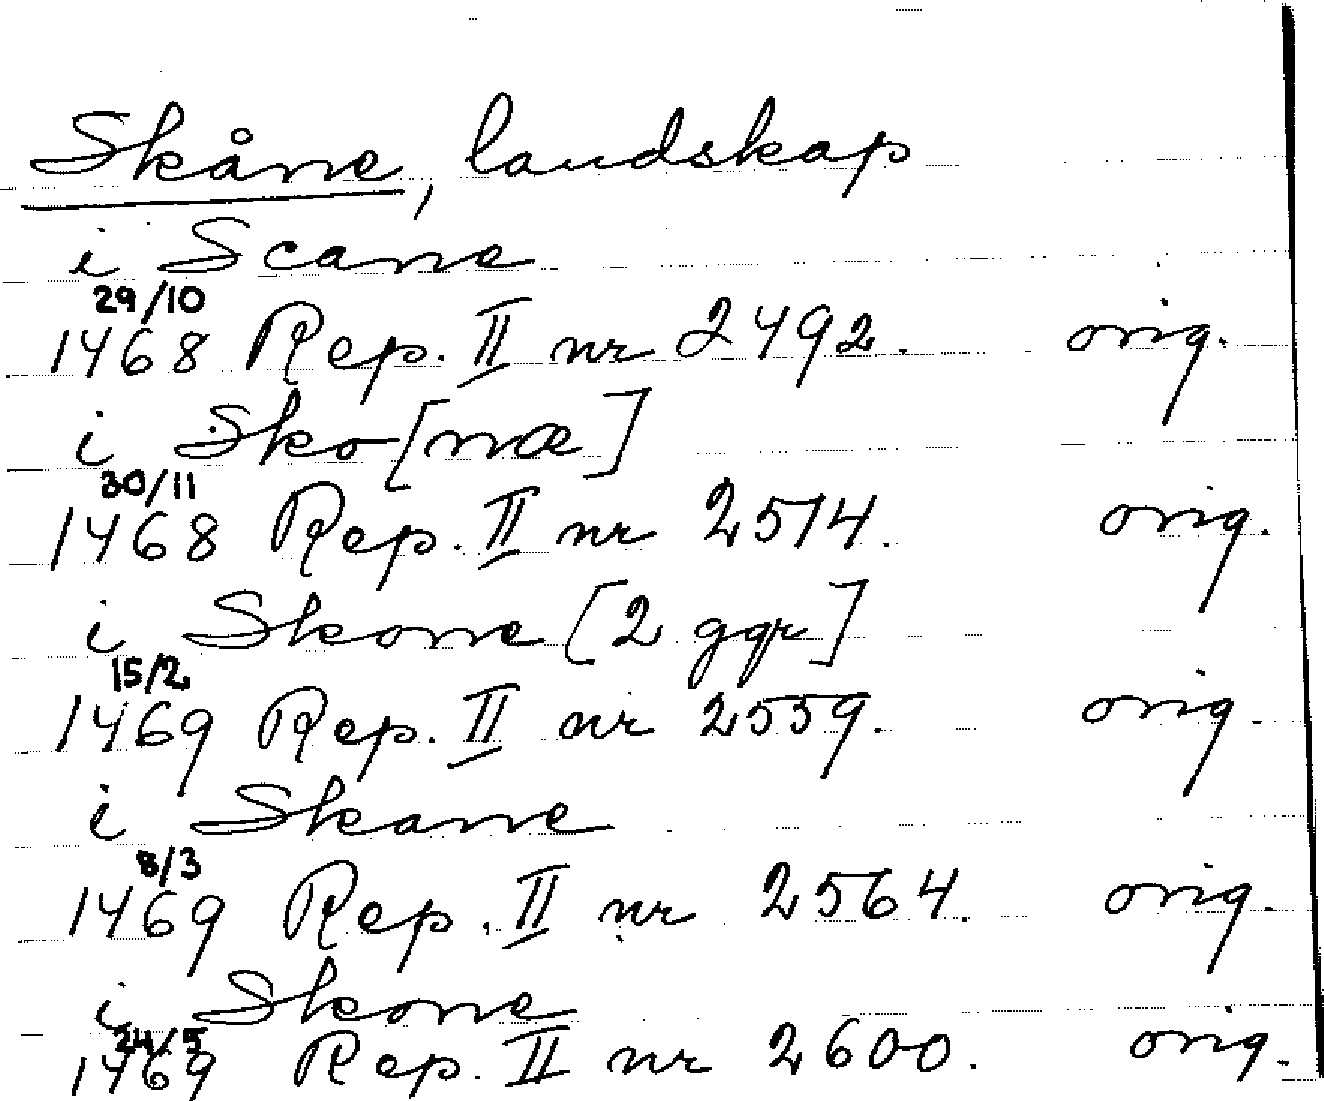 Skåne, landskap
i Scane
29/10
1468 Rep. II nr 2492. orig.
i Sko[næ]
30/11
1468 Rep. II nr 2514. orig.
i Skone [2 ggr]
15/2
1469 Rep. II nr 2559. orig.
i Skane
8/3
1469 Rep. II nr 2564. orig.
i Skone
24/5
1469 Rep. II nr 2600. orig.